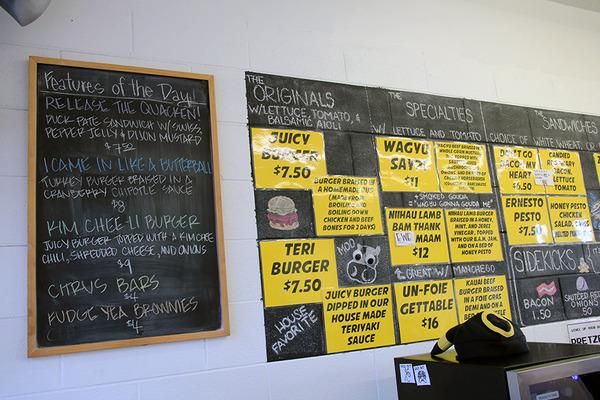 Features of the Day!
RELEASE THE QUACKEN!
DUCK PATE SANDWICH W/ SWISS,
PEPPER JELLY & DIJON MUSTARD
$7.50
I CAME IN LIKE A BUTTERBALL
TURKEY BURGER BRAISED IN A
CRANBERRY CHIPOTLE SAUCE
$8
KIM CHEE-LI BURGER
JUICY BURGER TOPPED WITH A KIM CHEE
CHILI, SHREDDED CHEESE, AND ONIONS
$9
CITRUS BARS
$4
FUDGE YEA BROWNIES
$4
THE
ORIGINALS
W/ LETTUCE, TOMATO, &
BALSAMIC AIOLI
JUICY
BURGER
$7.50
BURGER BRAISED IN
A HOMEMADE JUS
(MADE FROM
BROILING AND
BOILING DOWN
CHICKEN AND BEEF
BONES FOR 2 DAYS)
TERI
BURGER
$7.50
MOO
JUICY BURGER
DIPPED IN OUR
HOUSE MADE
TERIYAKI
SAUCE
HOUSE
FAVORITE
THE
SPECIALTIES
W/ LETTUCE AND TOMATO
WAGYU
SAY?!
$11
+ SMOKED GOUDA
= "WAGYU GONNA GOUDA ME"
NIIHAU LAMB
BAM THANK
MAAM
$12
NIIHAU LAMB
BURGER BRAISED
IN A HONEY,
MINT, AND JEREZ
VINEGAR. TOPPED
WITH OUR B.A.M. JAM,
AND ON A BED OF
HONEY PESTO
GREAT W/ MANCHEGO
UN-FOIE
GETTABLE
$16
KAUAI BEEF
BURGER BRAISED
IN A FOIE GRAS
DEMI AND ON A
THE
SANDWICHES
CHOICE OF
WHITE, WHEAT, OR
DON'T GO
BACON MY
HEART
$6.50
CANDIED
ROSEMARY
BACON,
LETTUCE
TOMATO
ERNESTO
PESTO
$7.50
HONEY PESTO
CHICKEN
SALAD,
SIDEKICKS
BACON
1.50
SAUTEED
ONIONS
.50